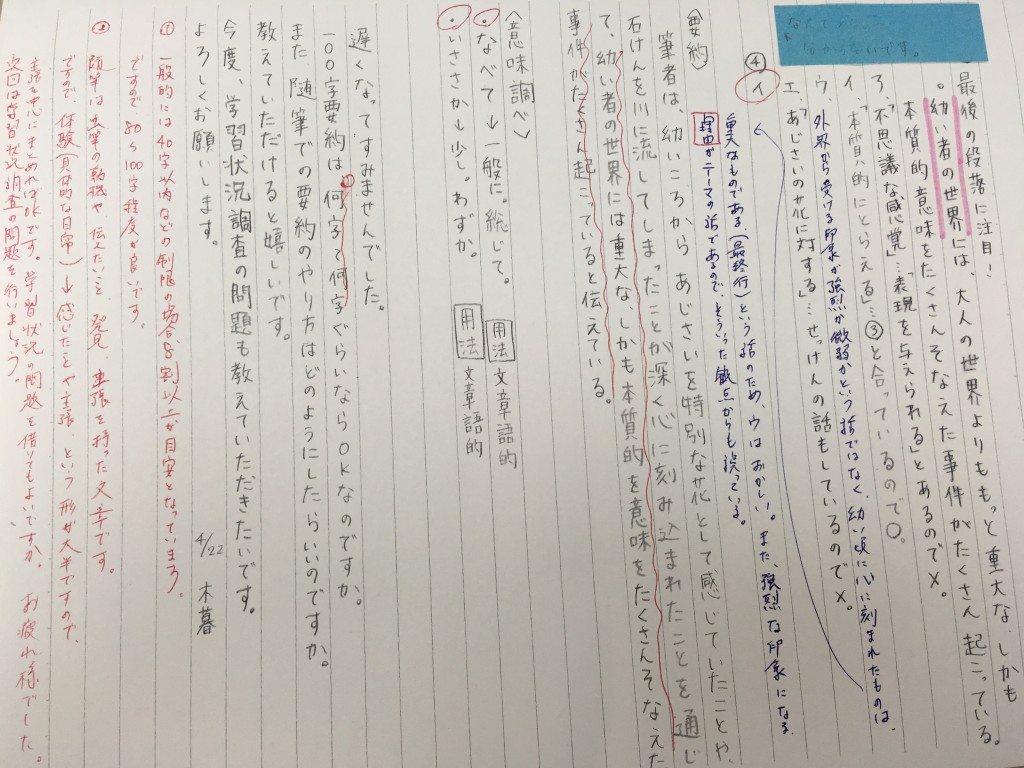 最後の段落に注目!
。幼い者の世界には、大人の世界よりももっと重大な、しかも
本質的意味をたくさんそなえた事件がたくさん起こっている。
ろ、「不思議な感覚」…表現を与えられる」とあるので×。
イ、「本質的にとらえる」…③と合っているので○。
ウ、外界から受ける印象が強烈か微弱かという話ではなく、幼い頃に心に刻まれたものは
エ、「あじさいの花に対する」…せっけんの話もしているので×。
④ イ
重大なものである、(最終行)という話のため、ウはおかしい。また、強烈な印象になる
理由がテーマの話であるので、そういった観点からも誤っている。
〈要約〉
筆者は、幼いころからあじさいを特別な花として感じていたことや、
石けんを川に流してしまったことが深く心に刻み込まれたことを通じ
て、幼い者の世界には重大な、しかも本質的を意味をたくさんそなえた
事件がたくさん起こっていると伝えている。
〈意味調べ〉
・なべて→一般に。総じて。 用法 文章語的
・いささか→少し。わずか。 用法 文章語的
遅くなってすみませんでした。
一〇〇字要約は何字〜何字ぐらいならOKなのですか。
また、随筆での要約のやり方はどのようにしたらいいのですか。
教えていただけると嬉しいです。
今度、学習状況調査の問題も教えていただきたいです。
よろしくお願いします。
4/22 木暮
① 一般的には40字以内などの制限の場合、8割以上が目安となっています。
ですので80〜100字程度が良いです。
② 随筆は出筆の動機や、伝えたいこと、発見、主張を持った文章です。
ですので、体験(具体的な日常)→感じたことや主張、という形が大半ですので、
主張を中心にまとめればOKです。学習状況の問題を借りてもよいですか。お疲れ様でした。
次回は学習状況調査の問題を行いましょう。